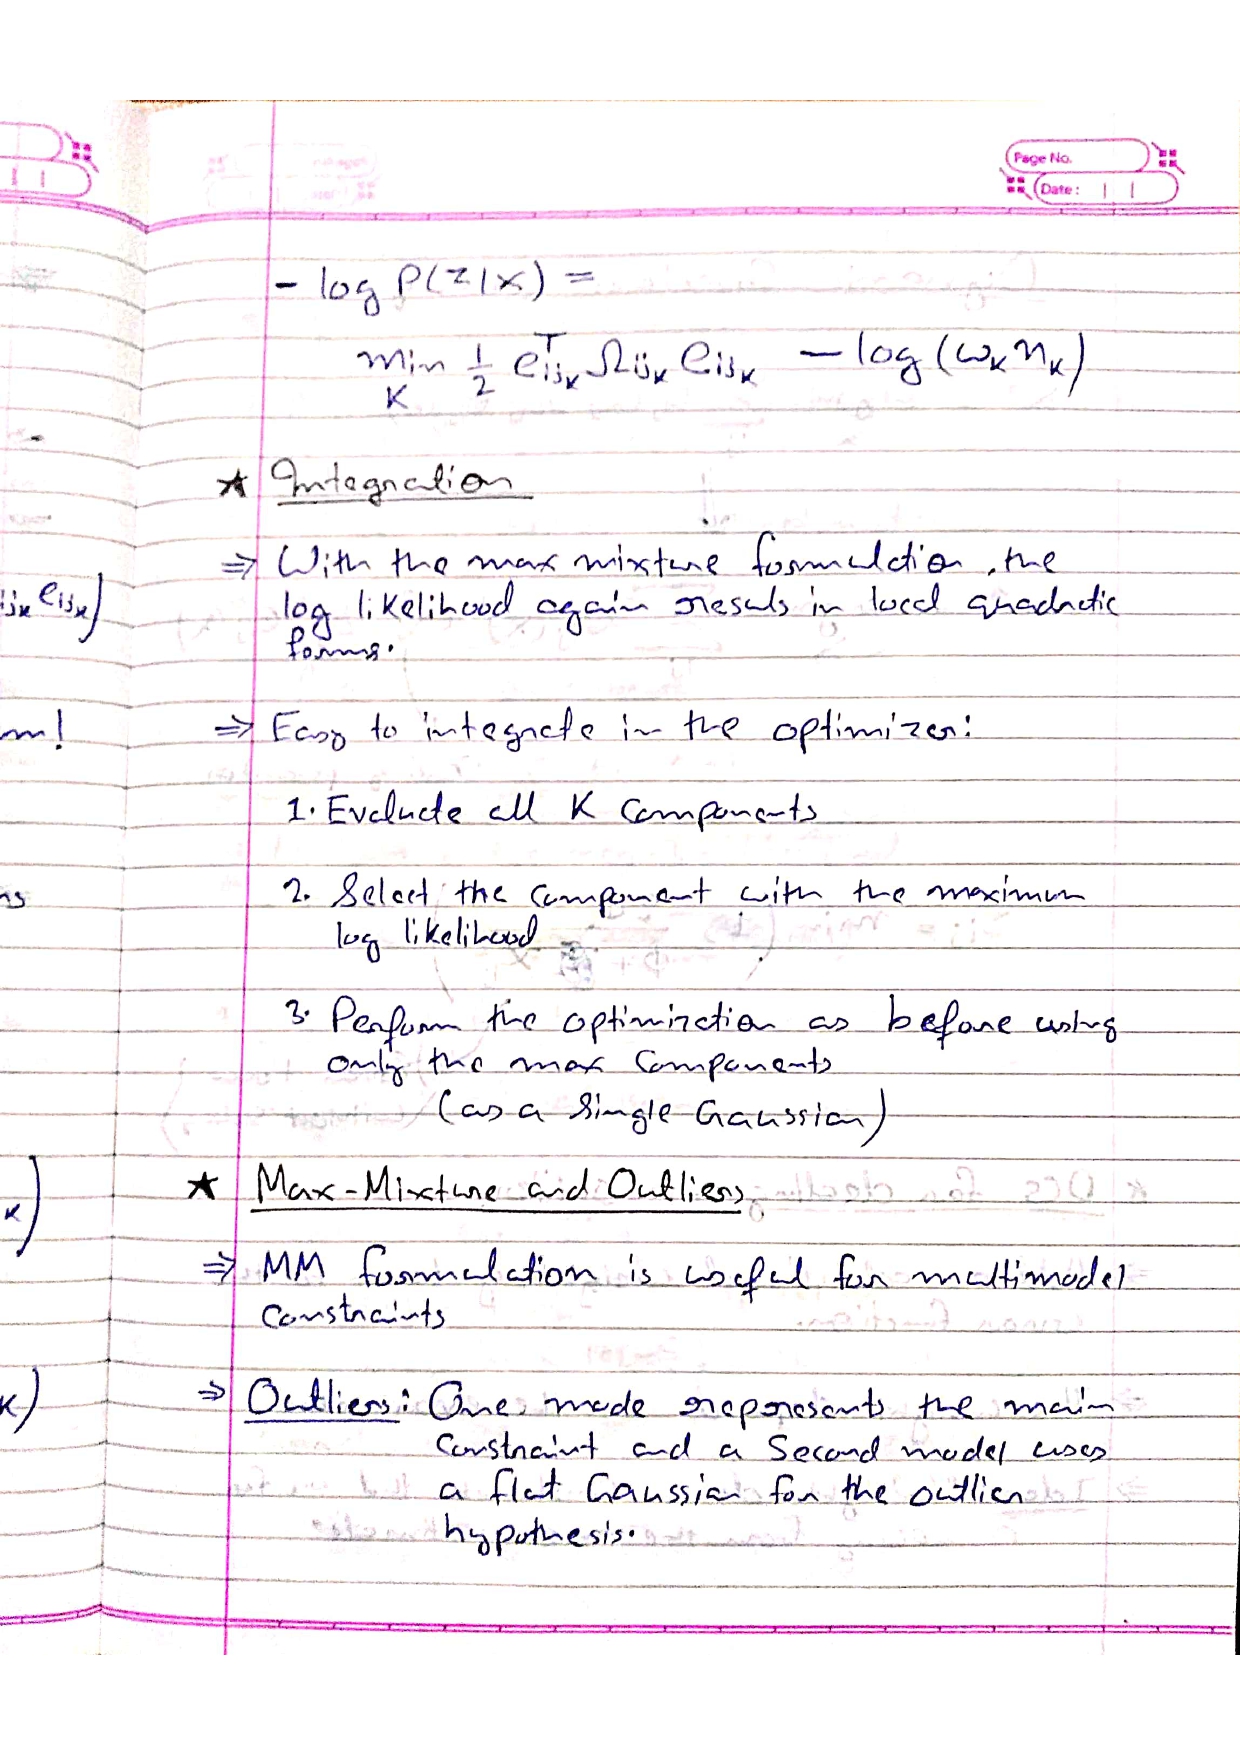 Page No.
Date :
- log P(z|x) =
min_K 1/2 e^T_ijk Ω_ijk e_ijk - log(ω_k η_k)
★ Integration
⇒ With the max mixture formulation, the
log likelihood again results in local quadratic
forms.
⇒ Easy to integrate in the optimizer:
1. Evaluate all K components
2. Select the component with the maximum
log likelihood
3. Perform the optimization as before using
only the max components
(as a Single Gaussian)
★ Max-Mixture and Outliers
⇒ MM formulation is useful for multimodel
constraints
⇒ Outliers: One mode represents the main
constraint and a Second model uses
a flat Gaussian for the outlier
hypothesis.